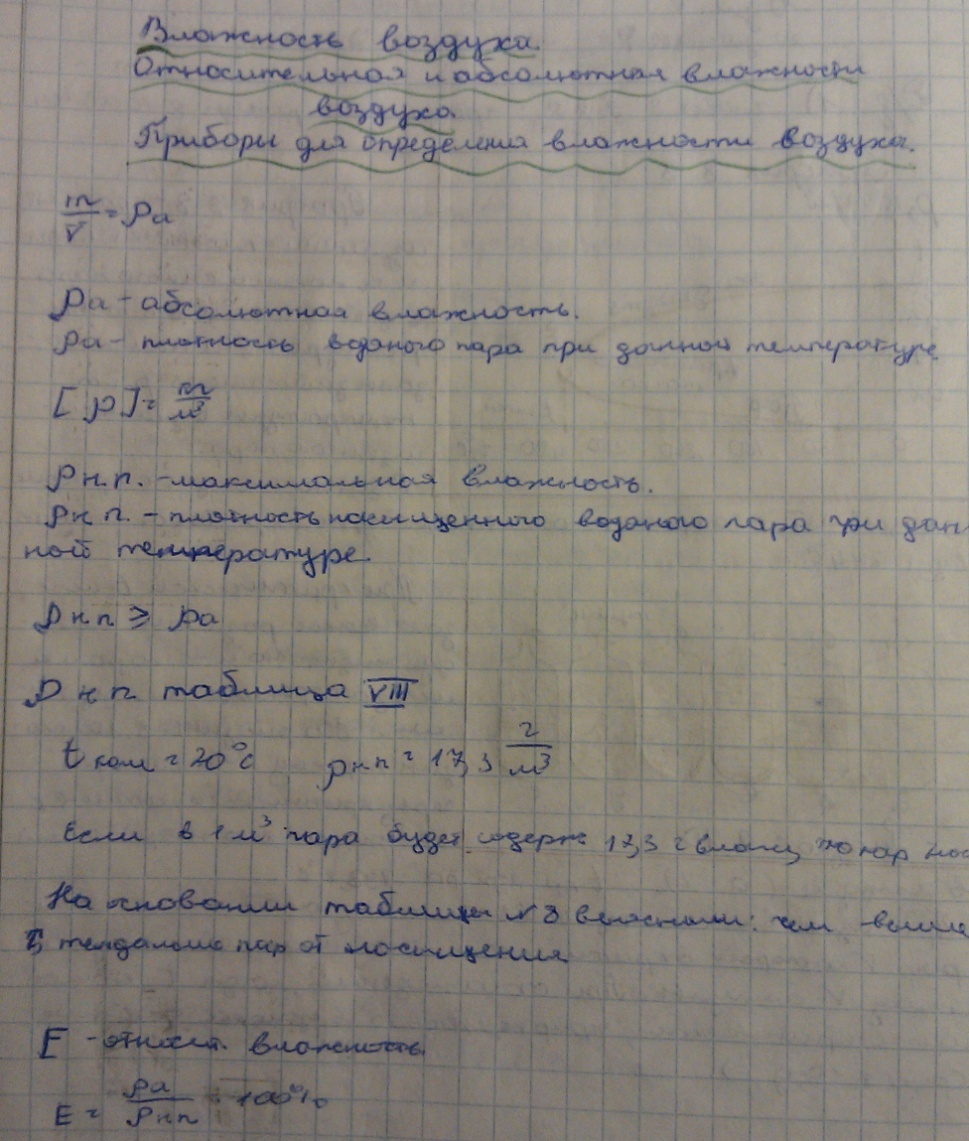 Влажность воздуха.
Относительная и абсолютная влажности
воздуха.
Приборы для определения влажности воздуха.
m/V = ρа
ρа - абсолютная влажность.
ρа - плотность водяного пара при данной температуре
[ρ] = m/м³
ρн.п. - максимальная влажность.
ρн п. - плотность насыщенного водяного пара при дан
ной температуре.
ρн п ≥ ρа
ρ н п таблица VIII
t ком = 20°C ρнп = 17,3 г/м³
Если в 1 м³ пара будет содерж 17,3 г влаги, то пар нас
На основании таблицы N 8 выяснили: чем выше
t, тем дальше пар от насыщения
E - относит. влажность.
E = ρа/ρнп · 100%